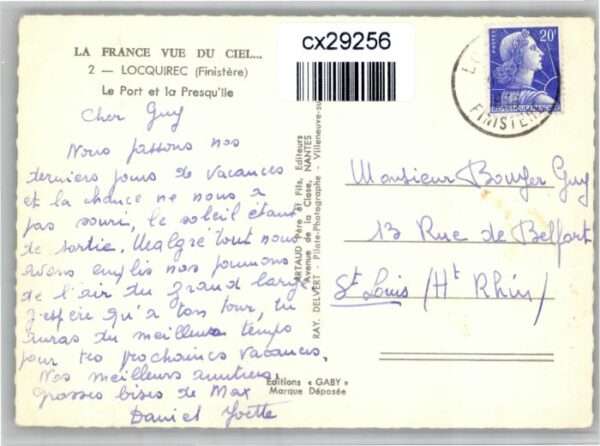 LA FRANCE VUE DU CIEL...
2 — LOCQUIREC (Finistère)
Le Port et la Presqu'île
cx29256
20F
POSTES
FINISTERE
Cher Guy
Nous passons nos
derniers jours de vacances
et la chance ne nous a
pas souri, le soleil étant
de sortie. Malgré tout nous
avons emplis nos poumons
de l'air du grand large
J'espère qu'a ton tour, tu
auras du meilleur temps
pour tes prochaines vacances.
Nos meilleurs amitiés,
grosses bises de Max
Daniel Yvette
ARTAUD Père et Fils, Editeurs
Avenue de la Close, NANTES
RAY. DELVERT Pilote-Photographe - Villeneuve-su
Editions « GABY »
Marque Déposée
Monsieur Guy
13 Rue de Belfort
St Louis (Ht Rhin)